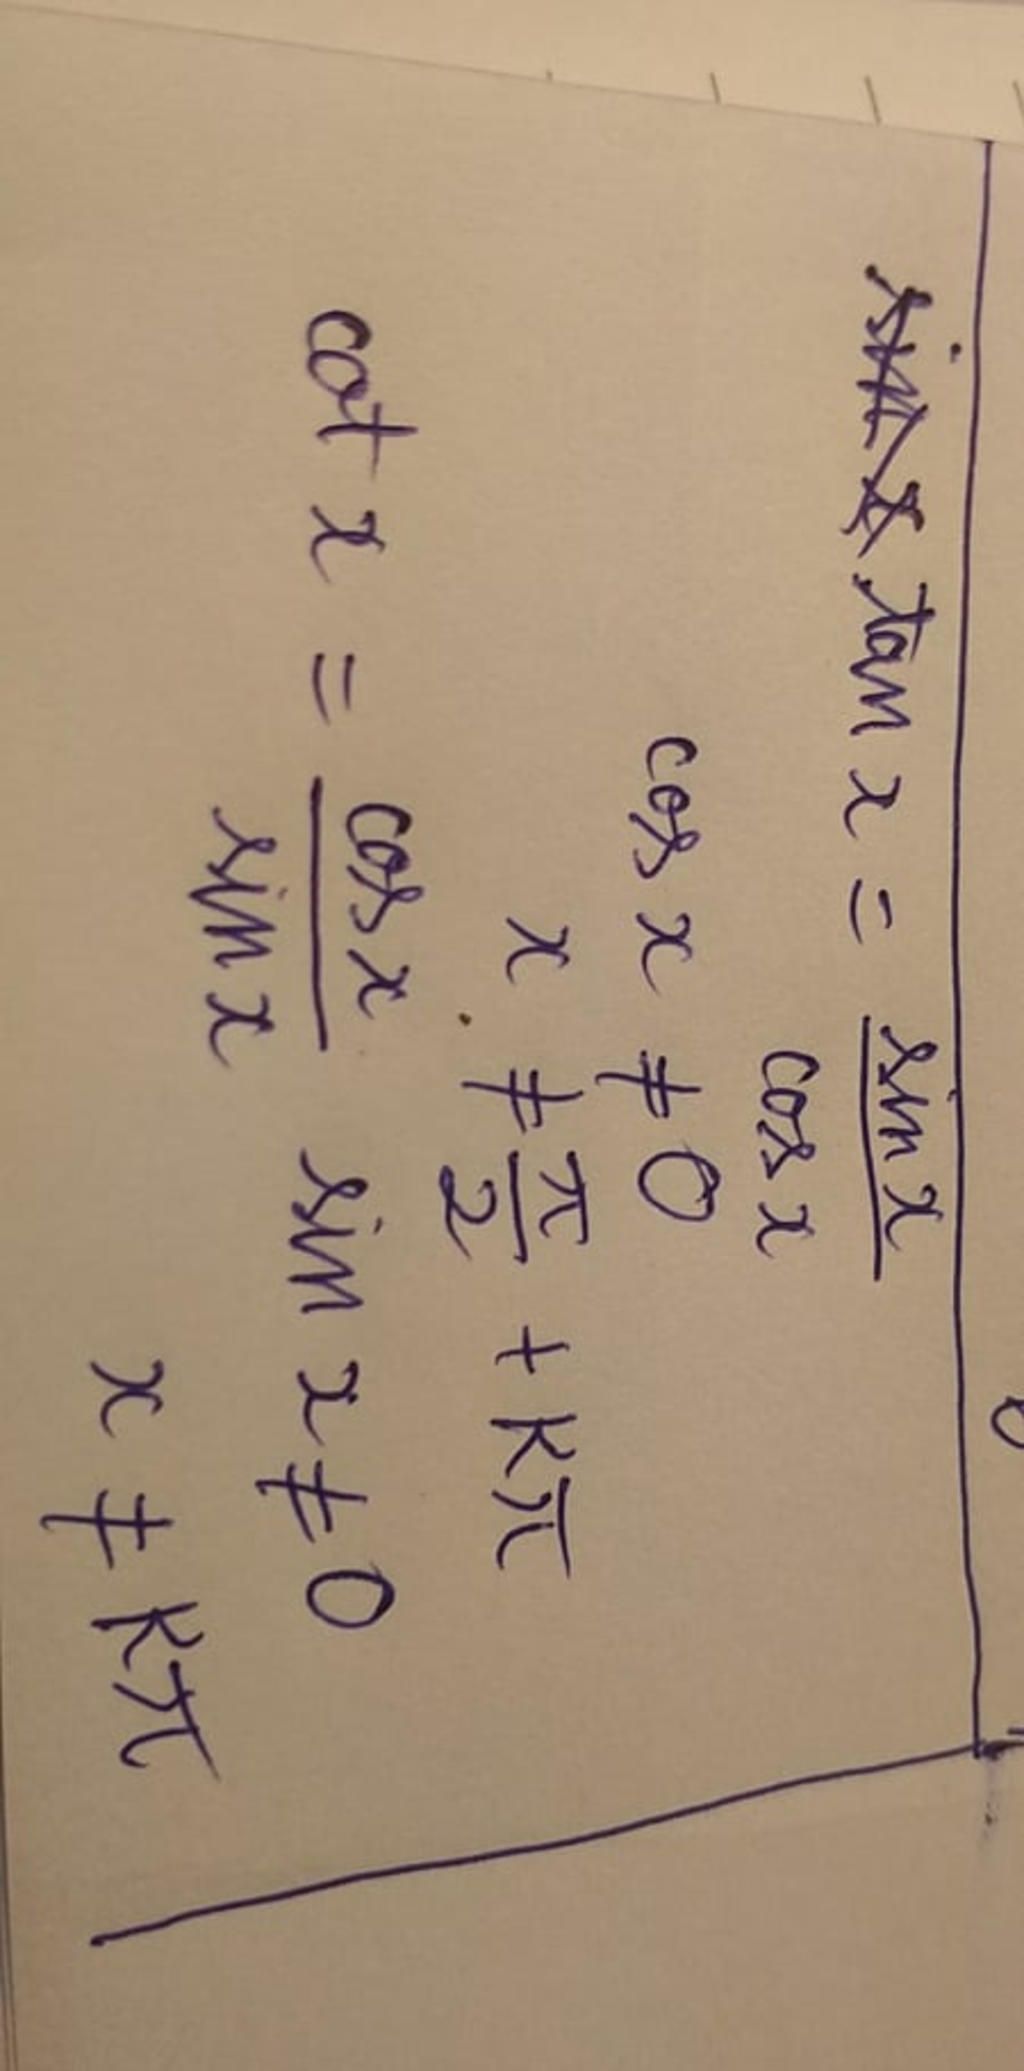 sin x tan x = sin x / cos x
cos x ≠ 0
x ≠ π/2 + kπ
cot x = cos x / sin x sin x ≠ 0
x ≠ kπ